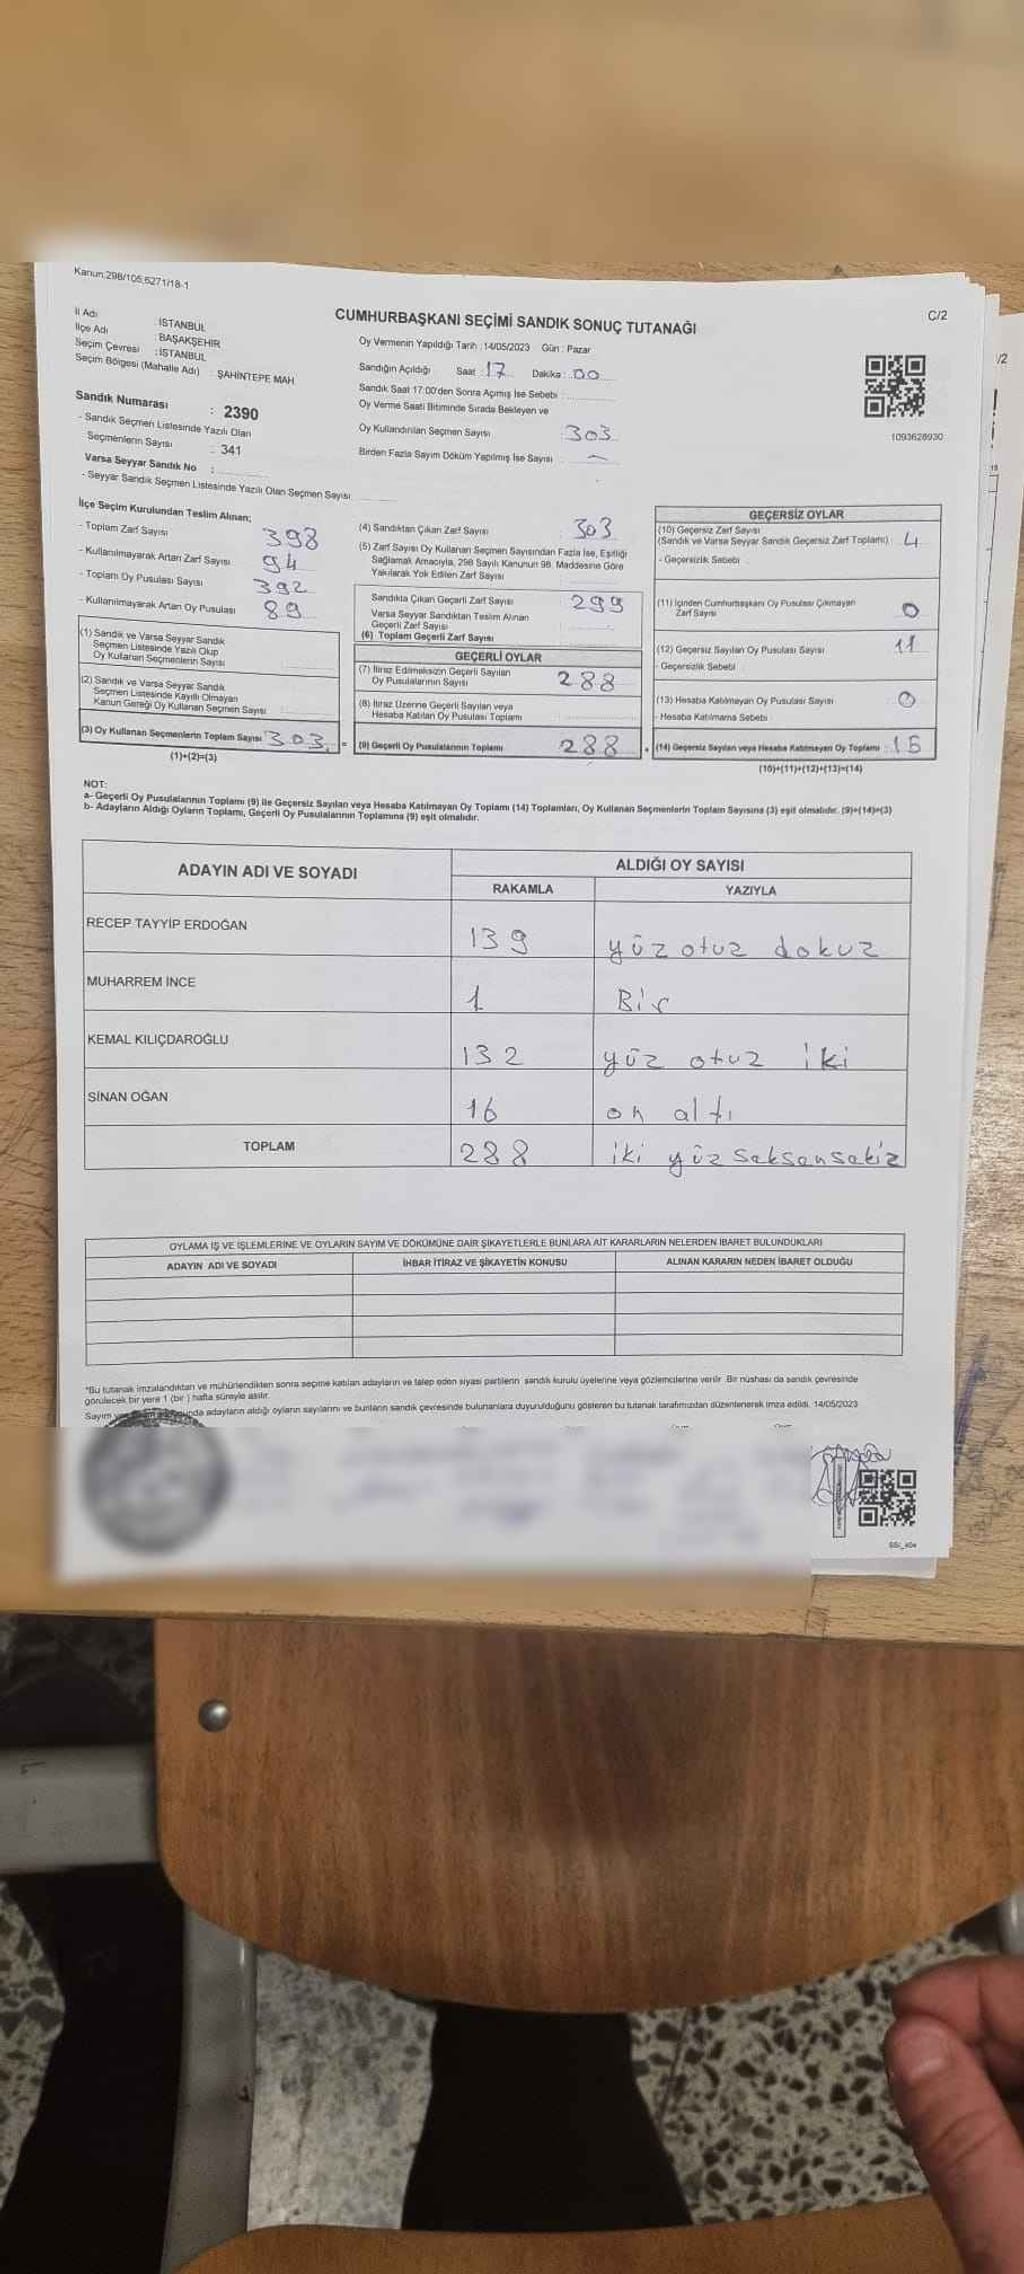 Kanun:298/105;6271/18-1
C/2
CUMHURBAŞKANI SEÇİMİ SANDIK SONUÇ TUTANAĞI
İl Adı : İSTANBUL
İlçe Adı : BAŞAKŞEHİR
Seçim Çevresi : İSTANBUL
Seçim Bölgesi (Mahalle Adı) : ŞAHİNTEPE MAH
Sandık Numarası : 2390
- Sandık Seçmen Listesinde Yazılı Olan
Seçmenlerin Sayısı : 341
Varsa Seyyar Sandık No :
- Seyyar Sandık Seçmen Listesinde Yazılı Olan Seçmen Sayısı
Oy Vermenin Yapıldığı Tarih : 14/05/2023 Gün : Pazar
Sandığın Açıldığı Saat : 17 Dakika : 00
Sandık Saat 17:00'den Sonra Açımış İse Sebebi :
Oy Verme Saati Bitiminde Sırada Bekleyen ve
Oy Kullandırılan Seçmen Sayısı : 303
Birden Fazla Sayım Döküm Yapılmış İse Sayısı : -
1093628930
/2
İlçe Seçim Kurulundan Teslim Alınan;
- Toplam Zarf Sayısı 398
- Kullanılmayarak Artan Zarf Sayısı 94
- Toplam Oy Pusulası Sayısı 392
- Kullanılmayarak Artan Oy Pusulası 89
(1) Sandık ve Varsa Seyyar Sandık
Seçmen Listesinde Yazılı Olup
Oy Kullanan Seçmenlerin Sayısı
(2) Sandık ve Varsa Seyyar Sandık
Seçmen Listesinde Kayıtlı Olmayan
Kanun Gereği Oy Kullanan Seçmen Sayısı
(3) Oy Kullanan Seçmenlerin Toplam Sayısı 303
(1)+(2)=(3)
(4) Sandıktan Çıkan Zarf Sayısı 303
(5) Zarf Sayısı Oy Kullanan Seçmen Sayısından Fazla İse, Eşitliği
Sağlamak Amacıyla, 298 Sayılı Kanunun 98. Maddesine Göre
Yakılarak Yok Edilen Zarf Sayısı
Sandıkta Çıkan Geçerli Zarf Sayısı 299
Varsa Seyyar Sandıktan Teslim Alınan
Geçerli Zarf Sayısı
(6) Toplam Geçerli Zarf Sayısı
GEÇERLİ OYLAR
(7) İtiraz Edilmeksizin Geçerli Sayılan
Oy Pusulalarının Sayısı 288
(8) İtiraz Üzerine Geçerli Sayılan veya
Hesaba Katılan Oy Pusulası Toplamı
= (9) Geçerli Oy Pusulalarının Toplamı 288
GEÇERSİZ OYLAR
(10) Geçersiz Zarf Sayısı
(Sandık ve Varsa Seyyar Sandık Geçersiz Zarf Toplamı) : 4
- Geçersizlik Sebebi
(11) İçinden Cumhurbaşkanı Oy Pusulası Çıkmayan
Zarf Sayısı 0
(12) Geçersiz Sayılan Oy Pusulası Sayısı : 11
- Geçersizlik Sebebi
(13) Hesaba Katılmayan Oy Pusulası Sayısı 0
- Hesaba Katılmama Sebebi
+ (14) Geçersiz Sayılan veya Hesaba Katılmayan Oy Toplamı : 15
(10)+(11)+(12)+(13)=(14)
NOT:
a- Geçerli Oy Pusulalarının Toplamı (9) ile Geçersiz Sayılan veya Hesaba Katılmayan Oy Toplamı (14) Toplamları, Oy Kullanan Seçmenlerin Toplam Sayısına (3) eşit olmalıdır. (9)+(14)=(3)
b- Adayların Aldığı Oyların Toplamı, Geçerli Oy Pusulalarının Toplamına (9) eşit olmalıdır.
ADAYIN ADI VE SOYADI ALDIĞI OY SAYISI
RAKAMLA YAZIYLA
RECEP TAYYİP ERDOĞAN 139 yüz otuz dokuz
MUHARREM İNCE 1 Bir
KEMAL KILIÇDAROĞLU 132 yüz otuz iki
SİNAN OĞAN 16 on altı
TOPLAM 288 iki yüz seksen sekiz
OYLAMA İŞ VE İŞLEMLERİNE VE OYLARIN SAYIM VE DÖKÜMÜNE DAİR ŞİKAYETLERLE BUNLARA AİT KARARLARIN NELERDEN İBARET BULUNDUKLARI
ADAYIN ADI VE SOYADI İHBAR İTİRAZ VE ŞİKAYETİN KONUSU ALINAN KARARIN NEDEN İBARET OLDUĞU
*Bu tutanak imzalandıktan ve mühürlendikten sonra seçime katılan adayların ve talep eden siyasi partilerin sandık kurulu üyelerine veya gözlemcilerine verilir. Bir nüshası da sandık çevresinde
görülecek bir yere 1 (bir ) hafta süreyle asılır.
Sayım adayların aldığı oyların sayılarını ve bunların sandık çevresinde bulunanlara duyurulduğunu gösteren bu tutanak tarafımızdan düzenlenerek imza edildi. 14/05/2023